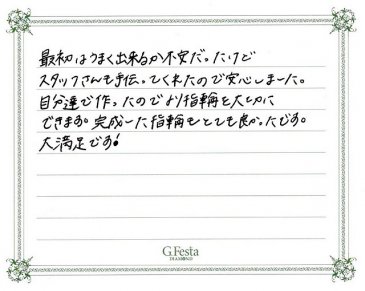 最初はうまく出来るか不安だったけど
スタッフさんも手伝ってくれたので安心しました。
自分達で作ったのでより指輪を大切に
できます。完成した指輪もとても良かったです。
大満足です!
G.Festa
DIAMOND